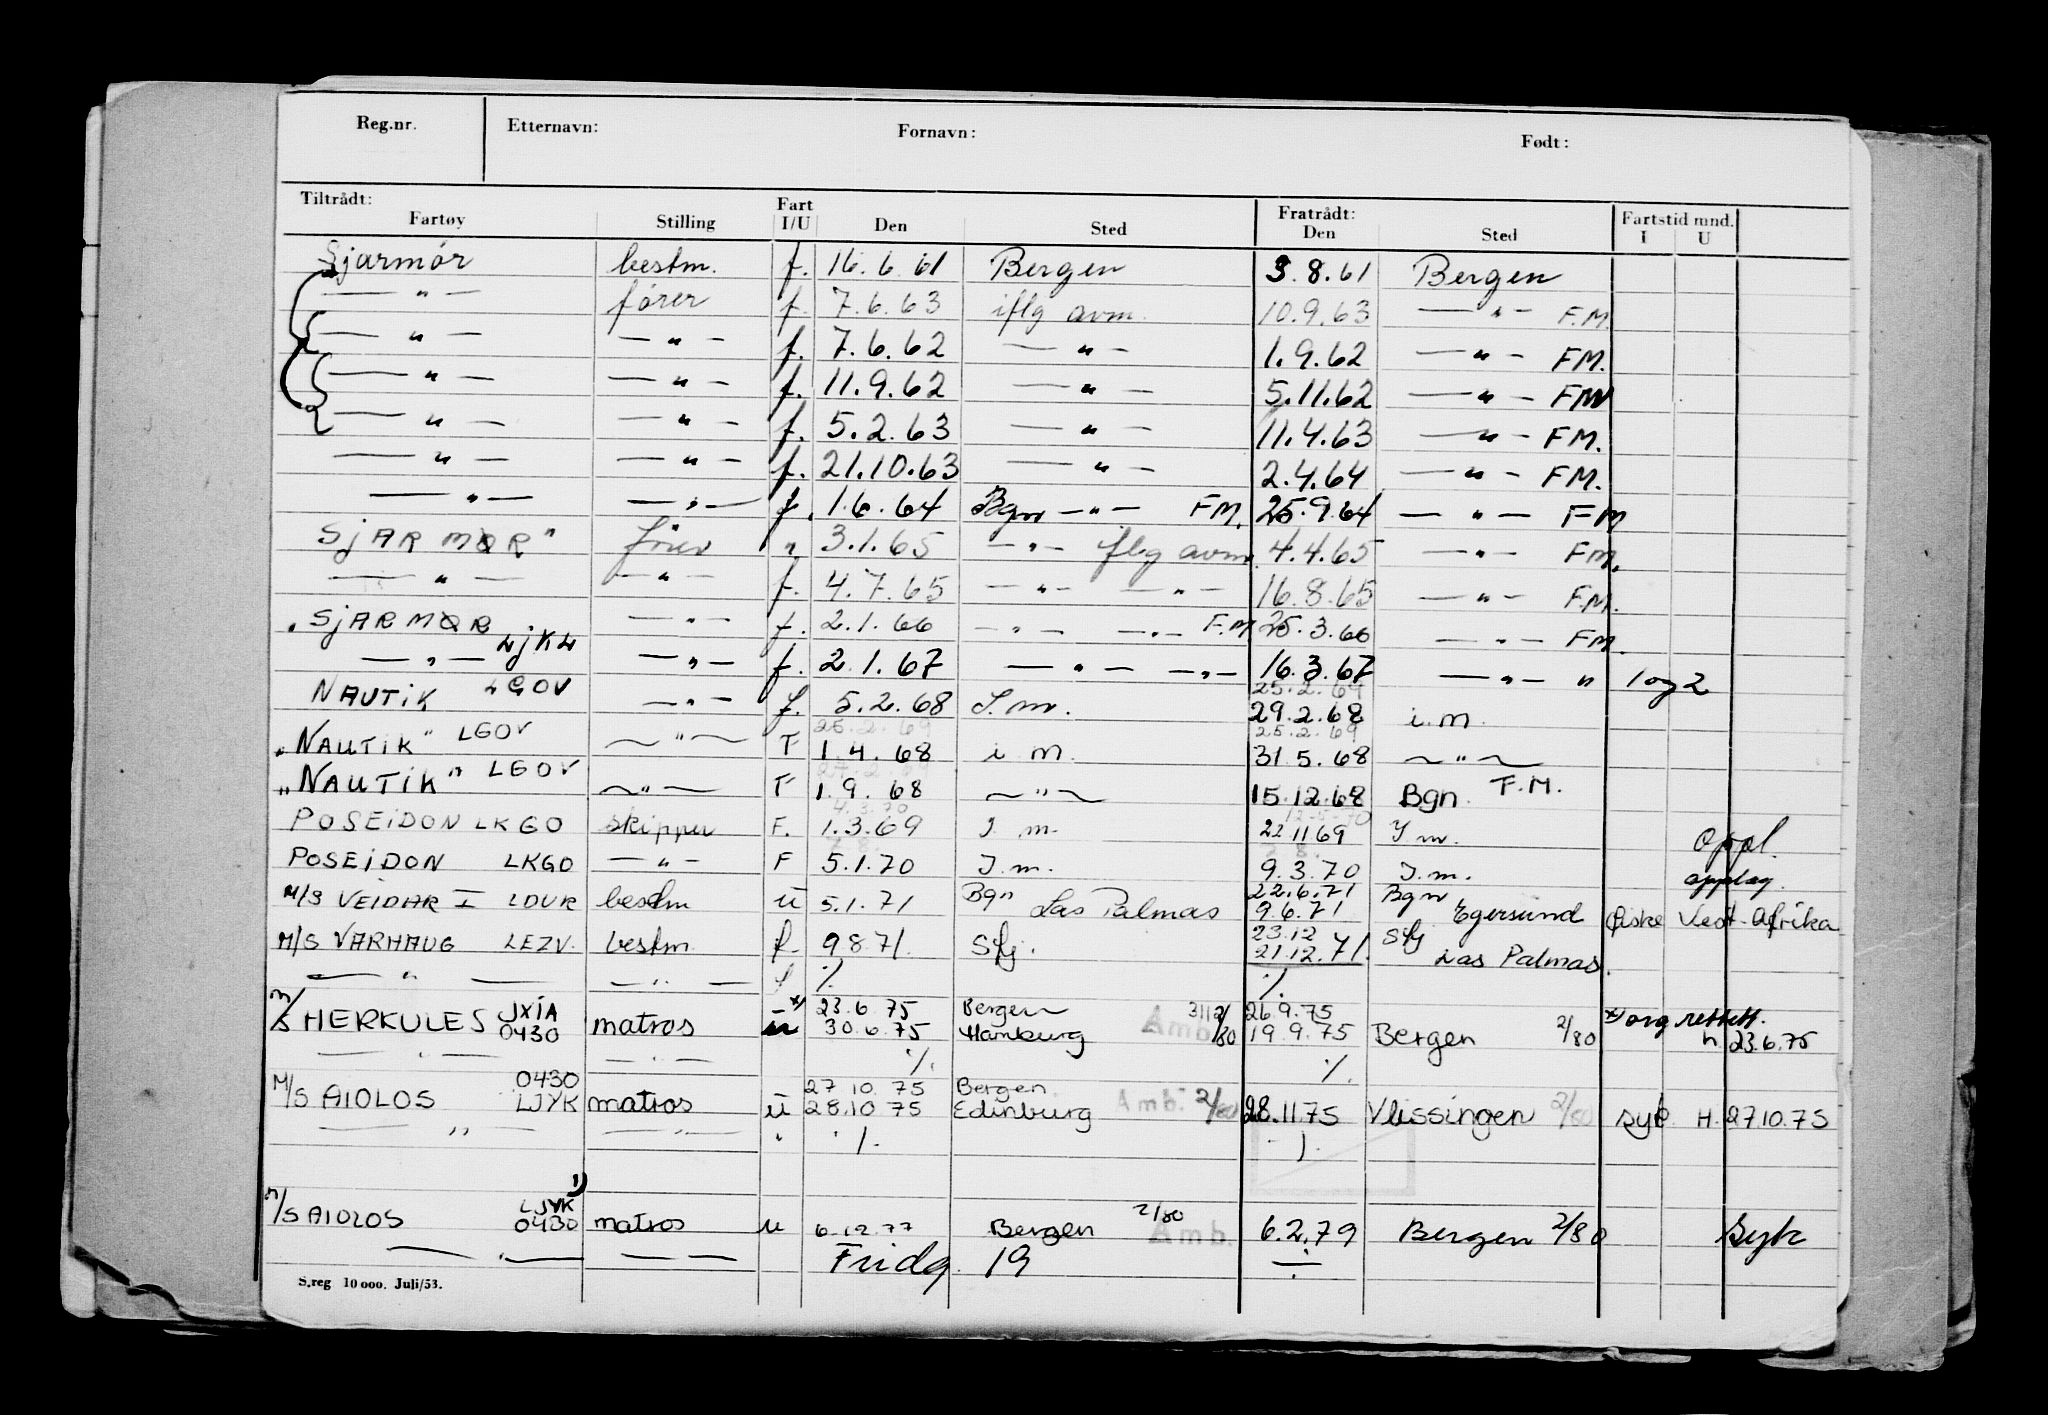 Reg.nr. Etternavn: Fornavn: Født:
Tiltrådt: Fart Fratrådt: Fartstid mnd.
Fartøy Stilling I/U Den Sted Den Sted I U
Sjarmør bestm. f. 16.6.61 Bergen 3.8.61 Bergen
— " — fører f. 7.6.63 iflg avm. 10.9.63 — " — F.M.
— " — — " — f. 7.6.62 — " — 1.9.62 — " — FM.
— " — — " — f. 11.9.62 — " — 5.11.62 — " — FM
— " — — " — f. 5.2.63 — " — 11.4.63 — " — FM.
— " — — " — f. 21.10.63 — " — 2.4.64 — " — FM.
— " — — " — f. 1.6.64 Bgn — " — FM. 25.9.64 — " — FM
SjARMØR" fører " 3.1.65 — " — iflg avm. 4.4.65 — " — FM.
— " — — " — f. 4.7.65 — " — — " — 16.8.65 — " — F.M.
"SjARMØR — " — f. 2.1.66 — " — — " — F.M. 25.3.66 — " — FM.
— " — LjKL — " — f. 2.1.67 — " — — " — 16.3.67 — " — " 1 og 2
25.2.69
NAUTIK LGOV — " — f. 5.2.68 I.m. 29.2.68 i.m.
25.2.69 25.2.69
"NAUTIK" LGOV — " — F 1.4.68 i m. 31.5.68 — " —
27.2.69
"NAUTIK" LGOV — " — F 1.9.68 — " — 15.12.68 Bgn. F.M.
4.3.70 12.5.70
POSEIDON LKGO skipper F. 1.3.69 I m. 22.11.69 I m. oppl.
POSEIDON LKGO — " — F 5.1.70 I.m. 9.3.70 I.m. opplag.
M/S VEIDAR I LDUR bestm u 5.1.71 Bgn Las Palmas 22.6.71 9.6.71 Bgn Egersund fiske Vest-Afrika
M/S VARHAUG LEZV. bestm f. 9.8.71. Sfj. 23.12 21.12.71. Sfj Las Palmas.
— " — — " — f ./. ./.
M/S HERKULES JXIA 0430 matros —x) u 23.6.75 30.6.75 Bergen Hamburg Amb. 2/80 26.9.75 19.9.75 Bergen 2/80 x) org rettett. h 23.6.75
— " — — " — ./. ./.
M/S AIOLOS 0430 LJYK matros u 27.10.75 28.10.75 Bergen Edinburg Amb. 2/80 28.11.75 Vlissingen 2/80 syk H. 27.10.75
— " — — " — " ./. ./.
1)
M/S AIOLOS LJYK 0430 matros u 6.12.77 Bergen 2/80 Amb. 6.2.79 Bergen 2/80 Syk
— . — — — Fridg. 19 ÷
S.reg 10 000. Juli/53.